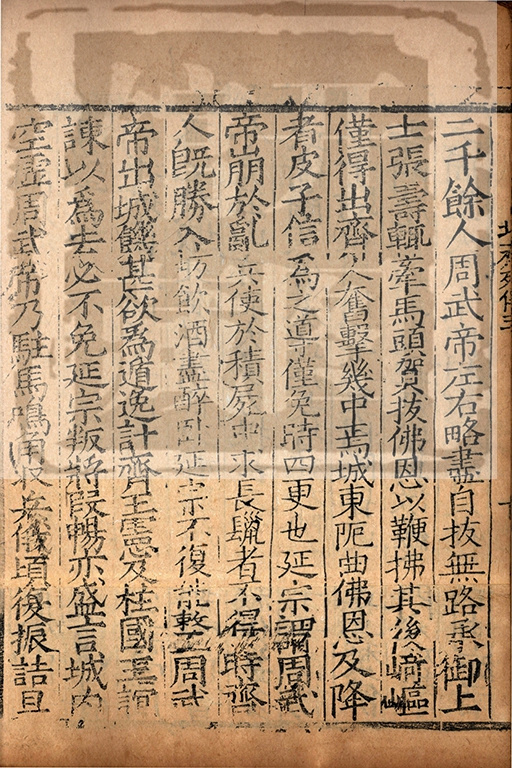 二千餘人周武帝左右略盡自拔無路承御上
士張壽輒牽馬頭賀拔佛恩以鞭拂其後崎嶇
僅得出齊人奮擊幾中焉城東阨曲佛恩及降
者皮子信爲之導僅免時四更也延宗謂周武
帝崩於亂兵使於積屍中求長鬣者不得時齊
人旣勝入坊飲酒盡醉臥延宗不復能整周武
帝出城饑甚欲爲遁逸計齊王憲及柱國王誼
諫以爲去必不免延宗叛將段暢亦盛言城内
空虛周武帝乃駐馬鳴角收兵俄頃復振詰旦